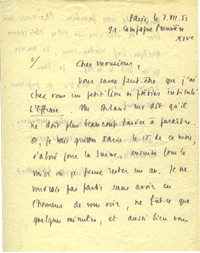 Paris, le 7.VII.51
9, r. Campagne Première
XIVe
Cher Monsieur,
Vous savez peut-être que j'ai
chez vous un petit livre de poésies intitulé
me dit qu'il
ne doit plus beaucoup tarder à paraître.
Or, je vais quitter Paris le 15 de ce mois,
d'abord pour la Suisse, ensuite pour le
midi où je pense rester un an. Je ne
voudrais pas partir sans avoir eu
l'honneur de vous voir, ne fût-ce que
quelques minutes, et aussi bien vous